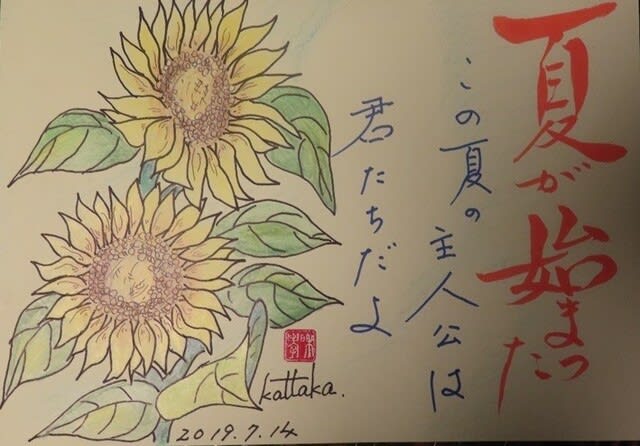 夏が始まった
この夏の
主人公は
君たちだよ
kattaka.
2019.7.14